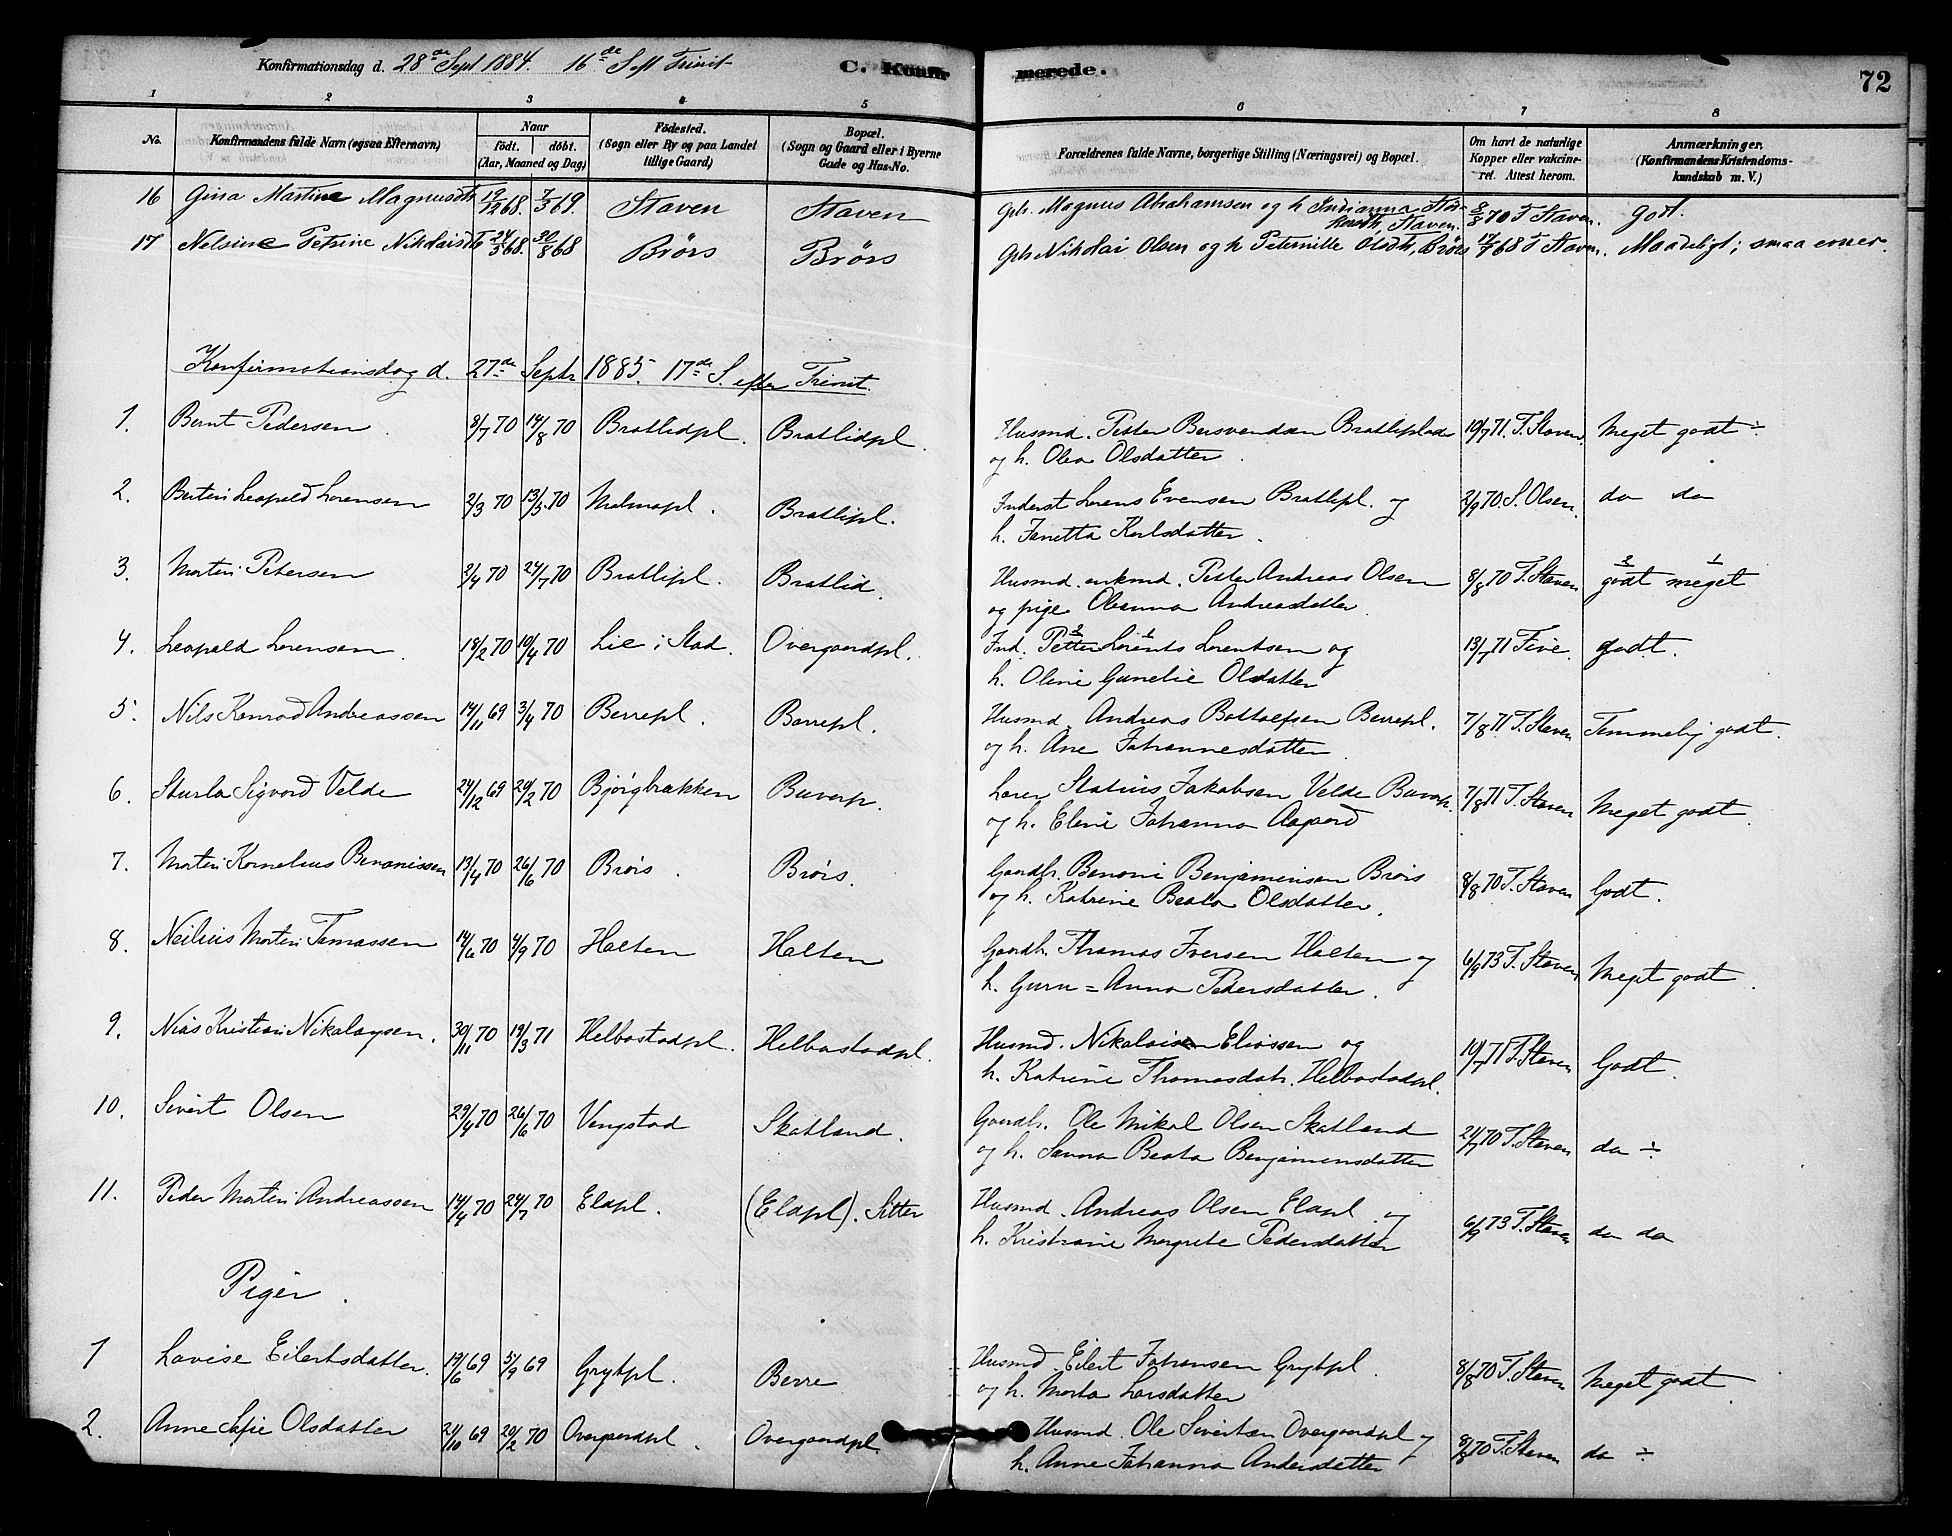 Konfirmationsdag d. 28de Sept 1884. 16de S. eft Trinit
C. Konfirmerede.
72
1 2 3 4 5 6 7 8
No. Konfirmandens fulde Navn (ogsaa Efternavn) Naar født. døbt. (Aar, Maaned og Dag) Fødested. (Sogn eller By og paa Landet tillige Gaard) Bopæl. (Sogn og Gaard eller i Byerne Gade og Hus-No. Forældrenes fulde Navne, borgerlige Stilling (Næringsvei) og Bopæl. Om havt de naturlige Kopper eller vakcineret. Attest herom. Anmærkninger. (Konfirmandens Kristendomskundskab m. V.)
16 Gina Martine Magnusdtr 19/12 68. 7/3 69. Staven Staven Gbr. Magnus Abrahamsen og h Indianna Staven. 8/8 70 T. Staven. godt.
17 Nelsine Petrine Nikolaisdtr 24/5 68. 30/8 68 Brørs Brørs Gbr. Nikolai Olsen og h Peternille Olsdtr, Brørs 17/7 68 T. Staven. Maadeligt; smaa evner.
Konfirmationsdag d. 27de Septr 1885. 17de S. efter Trinit.
1. Bernt Pedersen 8/7 70 14/8 70 Bratlidpl. Bratlidpl. Husmd. Petter Bersvendsen Bratliplads 10/7 71. T. Staven Meget godt ÷
og h. Olea Olsdatter.
2. Bertin Leopold Lorensen 2/3 70 13/5 70 Malmopl. Bratlipl. Inderst Lorens Evensen Bratlipl. og 2/9 70. S. Olsen. do do
h. Janetta Karlsdatter.
3. Morten Petersen 2/4 70 24/7 70 Bratlipl. Bratlid. Husmd. enkmd. Petter Andreas Olsen 8/8 70 T. Staven godt meget
og pige Oleanna Andreasdatter.
4. Leopold Lorensen. 18/2 70 19/4 70 Lie i Stod. Overgaardpl. Ind. Petter Lorents Lorentsen og 13/7 71 Five. godt.
h. Oline Gunelie Olsdatter
5. Nils Konrad Andreassen 14/11 69 3/4 70 Berrepl. Berrepl. Husmd. Andreas Bottolfsen Berrepl. 7/8 71 T. Staven Temmelig godt.
og h. Ane Johannesdatter.
6. Sturla Sigvard Velde 24/12 69 20/2 70 Bjørgbækken Buverp. Lærer Statius Jakobsen Velde Buverp. 7/8 71 T. Staven Meget godt.
og h. Eline Johanna Aagaard
7. Morten Kornelius Benonissen 13/4 70 26/6 70 Brørs. Brørs. Gaardbr. Benoni Benjaminsen Brørs 8/8 70 T. Staven Godt.
og h. Katrine Beata Olsdatter.
8. Neilius Morten Tomassen 14/6 70 4/9 70 Halten Halten Gaardbr. Thomas Iversen Halten og 6/9 73 T. Staven Meget godt.
h. Guru = Anna Pedersdatter.
9. Nias Kristian Nikolaysen. 30/11 70 19/3 71 Helbostadpl. Helbostadpl. Husmd. Nikolai Eliassen og 10/7 71 T. Staven Godt.
h. Katrine Thomasdatr. Helbostadpl.
10. Sivert Olsen 29/4 70 26/6 70 Vengstad Skatland. Gaardbr. Ole Mikal Olsen Skatland 21/7 70 T. Staven do ÷
og h. Sanna Beata Benjaminsdatter
11. Peder Morten Andreassen 14/4 70 24/7 70 Eldpl. (Eldpl). Sitter Husmd. Andreas Olsen Eldpl. og 6/9 73 T. Staven do do
h. Kristiane Margrete Pedersdatter
Piger.
1 Lovise Eilertsdatter. 19/6 69 5/9 69 Grytpl. Berre Husmd. Eilert Johansen Grytpl. 8/8 70 T. Staven Meget godt.
og h. Marta Larsdatter
2. Anne Sofie Olsdatter 21/10 69 20/2 70 Overgaardpl. Overgaardpl. Husmd. Ole Sivertsen Overgaardpl og 8/8 70 T. Staven do ÷
h. Anne Johanna Andersdatter